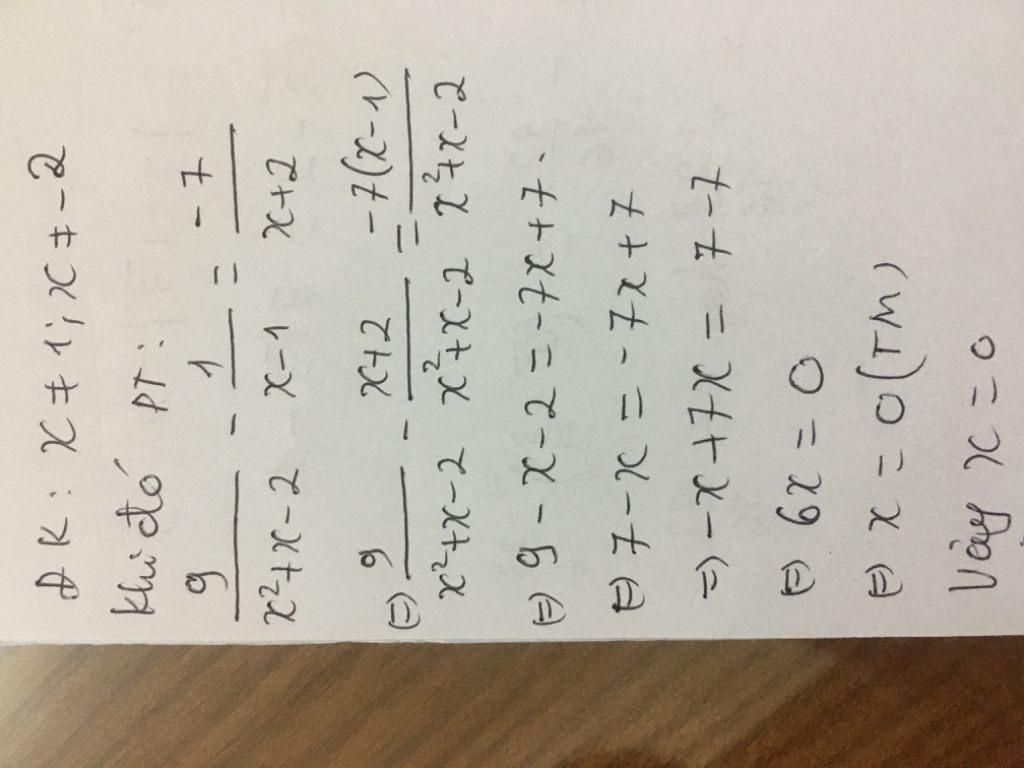 ĐK: x ≠ 1; x ≠ -2
Khi đó PT:
9/(x²+x-2) - 1/(x-1) = -7/(x+2)
(=) 9/(x²+x-2) - (x+2)/(x²+x-2) = -7(x-1)/(x²+x-2)
(=) 9 - x - 2 = -7x + 7.
(=) 7 - x = -7x + 7
=) -x + 7x = 7 - 7
(=) 6x = 0
(=) x = 0 (TM)
Vậy x = 0